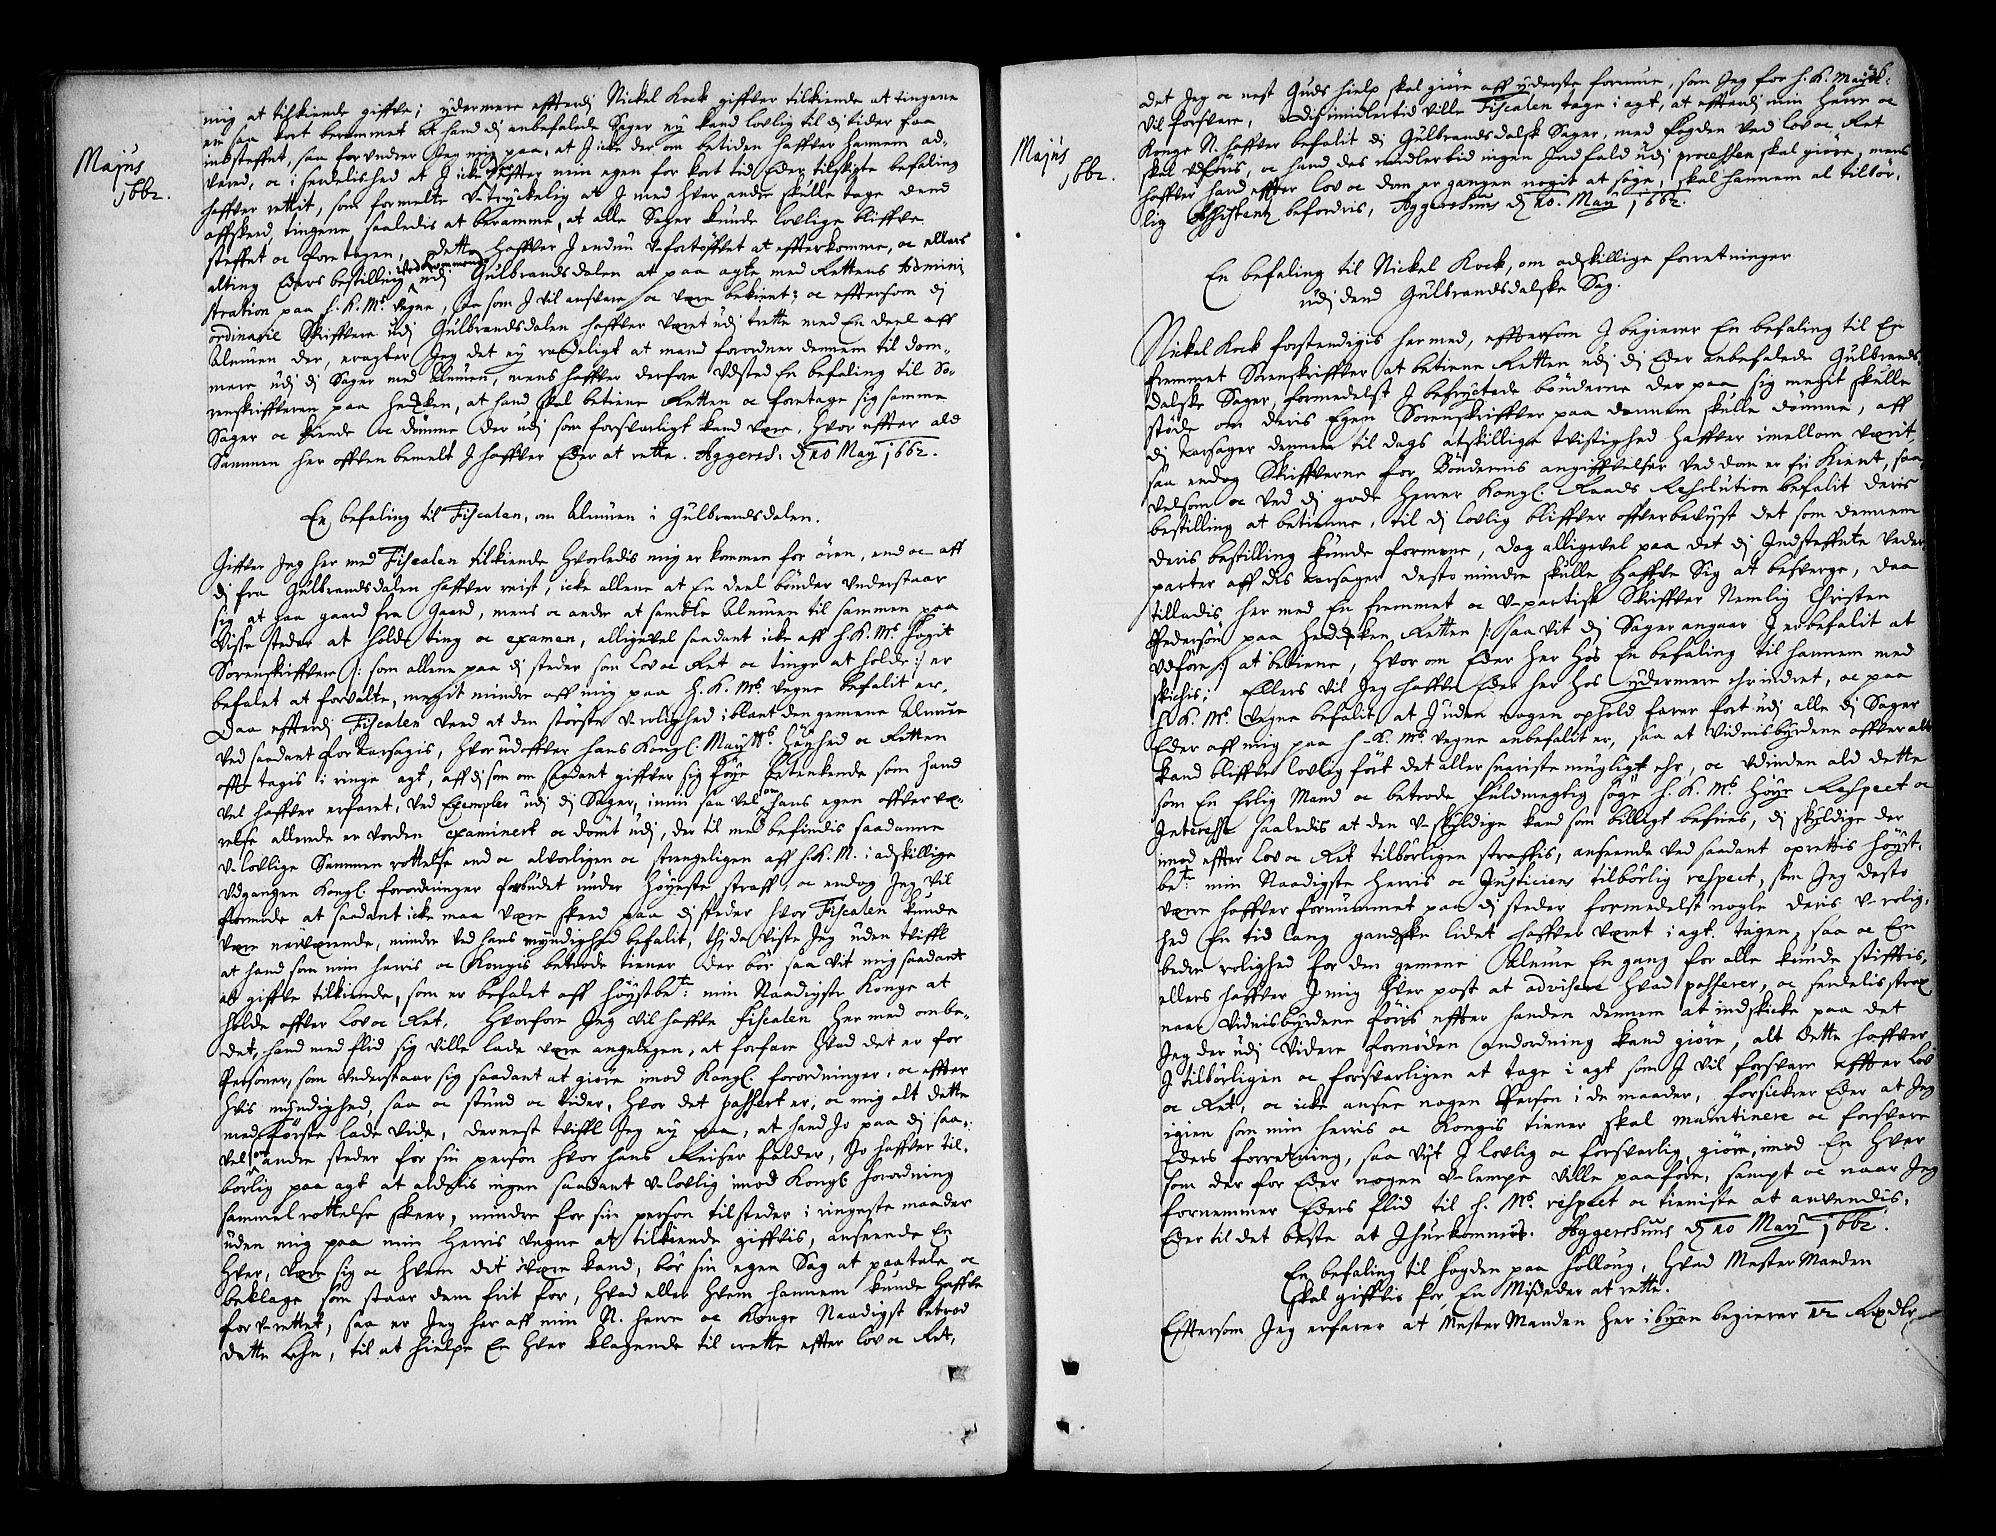 Majus
1662.
mig at tilkiende giffve; ydermere effterdj Nickel Kock giffver tilkiende at tingene
er saa kort berammet at hand dj anbefalede Sager ey kand lovlig til dj tider faa
indsteffnet, saa forundrer Jeg mig paa, at J icke der om betiden haffver hannem ad-
vared, oc i serdelished at J icke effter min egen for kort tid Eder tilskigte befaling
haffver rettit, som formelte U-tryckelig at J med hver andre skulle tage dend
affskeed, tingene saaledis at beramme, at alle Sager kunde lovlige bliffve
steffnet oc foretagen, dette haffver J endnu U-fortøffvet at effterkomme, oc ellers
alting Eders bestilling vedkommende udj Gulbrandsdalen at paa agte med Rettens Admini
stration paa H. K. Ms. Vegne, som J vil ansvare oc være bekient; oc efftersom dj
ordinarie Skriffvere udj Gulbrandsdalen haffver været udj trette med En deel aff
Almuen der, eragter Jeg det ey raadeligt at mand forordner dennem til dom-
mere udj dj Sager med Almuen, mens haffver derfore Udsted En befaling til So-
renskriffveren paa Hedken, at hand skal betiene Retten oc foretage sig samme
Sager oc kiende oc dømme der udj som forsvarligt kand være. Hvor effter ald
Sammen her offven bemelt J haffver Eder at rette. Aggersh: d 10 May 1662.
En befaling til Fiscalen, om Almuen i Gulbrandsdalen.
Giffver Jeg her med Fiscalen tilkiende hvorledis mig er kommen for øren, end oc aff
dj fra Gulbrandsdalen haffver reist, icke allene at En deel bønder Understaar
sig at gaa gaard fra Gaard, mens oc andre at samble Almuen til sammen paa
Visse steder at holde ting oc examen, alligevel saadant icke aff H. K. Ms. Fogit
Sorenskriffvere /: som allene paa dj steder som Lov oc Ret oc tinge at holde :/ er
befalet at forvalte, megit mindre aff mig paa H. K. Ms. Vegne befalit er,
Daa effterdj Fiscalen veed at den største U-rolighed i blant den gemene Almue
Ved saadant foraarsagis, hvorudoffver Hans Kongl. Maytts. Høyhed oc Retten
offte tagis i ringe agt, aff dj som om saadant giffver sig føye betenkende som hand
vel haffver erfaret, ved Exempler udj dj Sager, inden saa vel om hans egen offver væ-
relse allerede er vorden examineret oc dømt udj, der til med befindis saadanne
U-lovlige Sammen rottelse end oc alvorligen oc strengeligen aff H. K. M. i adskillige
Udgangen Kongl. forordninger forbudet under høyeste straff, oc endog Jeg vil
formode at saadant icke maa være skeed paa dj steder hvor Fiscalen kunde
være nerværende, mindre ved hans myndighed befalit, thj da viste Jeg uden tviffl
at hand som min herris oc Kongis betrode tiener der bør saa vit mig saadant
at giffve tilkiende, som er befalet aff høystbete. min Naadigste Konge at
holde offver Lov oc Ret. Hvorfore Jeg vil haffve Fiscalen her med ombe-
det, hand med flid sig ville lade være angelegen, at forfare hvad det er for
Personer, som Understaar sig saadant at giøre imod Kongl. forordninger, oc effter
hvis myndighed, saa oc stund oc tider, hvor det passert er, oc mig alt dette
med første lade vide, dernest tviffl Jeg ey paa, at hand Jo paa dj saa-
vel som andre steder for sin person hvor hans Reiser falder, Jo haffver til-
børlig paa agt at aldelis ingen saadant U-lovlig imod Kongl. forordning
sammelrottelse skeer, mindre for sin person tilsteder i ringeste maader
uden mig paa min Herris vegne at tilkiende giffvis, anseende En
hver, være sig oc hvem dit være kand, bør sin egen Sag at paatale oc
beklage som staar dem frit for, hvad eller hvem hannem kunde haffve
forurettet, saa er Jeg her aff min N. herre oc Konge Naadigst betrod
dette Lehn, til at hielpe En hver klagende til rette effter Lov oc Ret,
Majus
1662.
det Jeg oc nest Guds hielp skal giøre aff yderste formue, som Jeg for H. K. Maytt.
vil forsvare, disimidlertid ville Fiscalen tage i agt, at effterdj min Herre oc
Konge N. haffver befalit dj Gulbrandsdalsk Sager, med Fogden ved Lov oc Ret
skal udføris, oc hand des medlertid ingen Indfald udj processen skal giøre, mens
haffver hand effter Lov oc dom er gangen nogit at sige, skal hannem al tilbør-
lig Assistentz befordris, Aggershuus d 10. May 1662.
En befaling til Nickel Kock, om adskillige forretninger
udj dend Gulbrandsdalske Sag.
Nickel Kock forstendigis her med, efftersom J begierer En befaling til En
fremmet Sorenskriffver at betiene Retten udj dj Eder anbefalede Gulbrands-
dalske Sager, formedelst J befryctede bønderne der paa sig megit skulle
støde om deris Egen Sorenskriffver paa dennem skulle dømme, aff
dj aarsager dennem til dags atskillige tvistighed haffver imellom verit,
saa endog Skriffverne for Bøndernis angiffvelser ved dom er fri kient, saa-
velsom oc ved dj gode Herrer Kongl. Raads Resolution befalit deris
bestilling at betienne, til dj lovlig bliffver offverbevyst det som dennem
deris bestilling kunde formene, dog alligevel paa det dj Indsteffnte Veder-
parter aff dis aarsager desto mindre skulle haffve Sig at besverge, daa
tillades her med En fremmet oc U-partisk Skriffver Nemlig Christen
Pedersøn paa Hedecken Retten /: saa vit dj Sager angaar J er befalit at
Udføre :/ at betiene, hvor om Eder her hos En befaling til hannem med
skickis; Ellers vil Jeg haffve Eder her hos ydermere ehrindret, oc paa
H. K. Ms. Vegne befalit at J uden nogen ophold farer fort udj alle dj Sager
Eder aff mig paa H. K. Ms. Vegne anbefalit er, saa at Vidnisbyrdene offveralt
kand bliffve lovlig ført det aller snariste mugligt ehr, oc udinden ald dette
som En Erlig Mand oc betrode fuldmegtig søge H. K. Ms. Høye Respect oc
Interesse saaledis at den U-skyldige kand som billigt befries, dj skyldige der
imod effter Lov oc Ret tilbørligen straffis, anseende ved saadant oprettis Høyst-
bete. min Naadigste Herris oc Justiciens tilbørlig respect, som Jeg desto
værre haffver fornummet paa dj steder formedelst nogle deris U-rolig-
hed En tid lang gandske lidet haffver været i agt tagen, saa oc En
bedre rolighed for den gemene Almue En gang for alle kunde stifftis,
ellers haffver J mig hver post at advisere hvad passerer, oc serdelis strax
naar Vidnisbyrdene føris effter handen dennem at indskicke paa det
Jeg der udj Videre fornøden andordning kand giøre, alt dette haffver
J tilbørligen oc forsvarligen at tage i agt som J vil forsvare effter Lov
oc Ret, oc icke ansee nogen Person i de maader, forsickrer Eder at Jeg
igien som min Herris oc Kongis tiener skal maintinere oc forsvare
Eders forretning, saa vyt J lovlig oc forsvarlig giøre, imod En hver
som der for Eder nogen U-lempe ville paaføre, sampt oc naar Jeg
fornemmer Eders flid til H. Ms. respect oc tieniste at anvendis,
Eder til det beste at Jhuekommis. Aggershuus d 10 May 1662.
En befaling til Fogden paa Folloug, hvad Mester Manden
skal giffvis for En Misdeder at rette.
Efftersom Jeg erfarer at Mester Manden her i byen begierer 12 Rixdlr